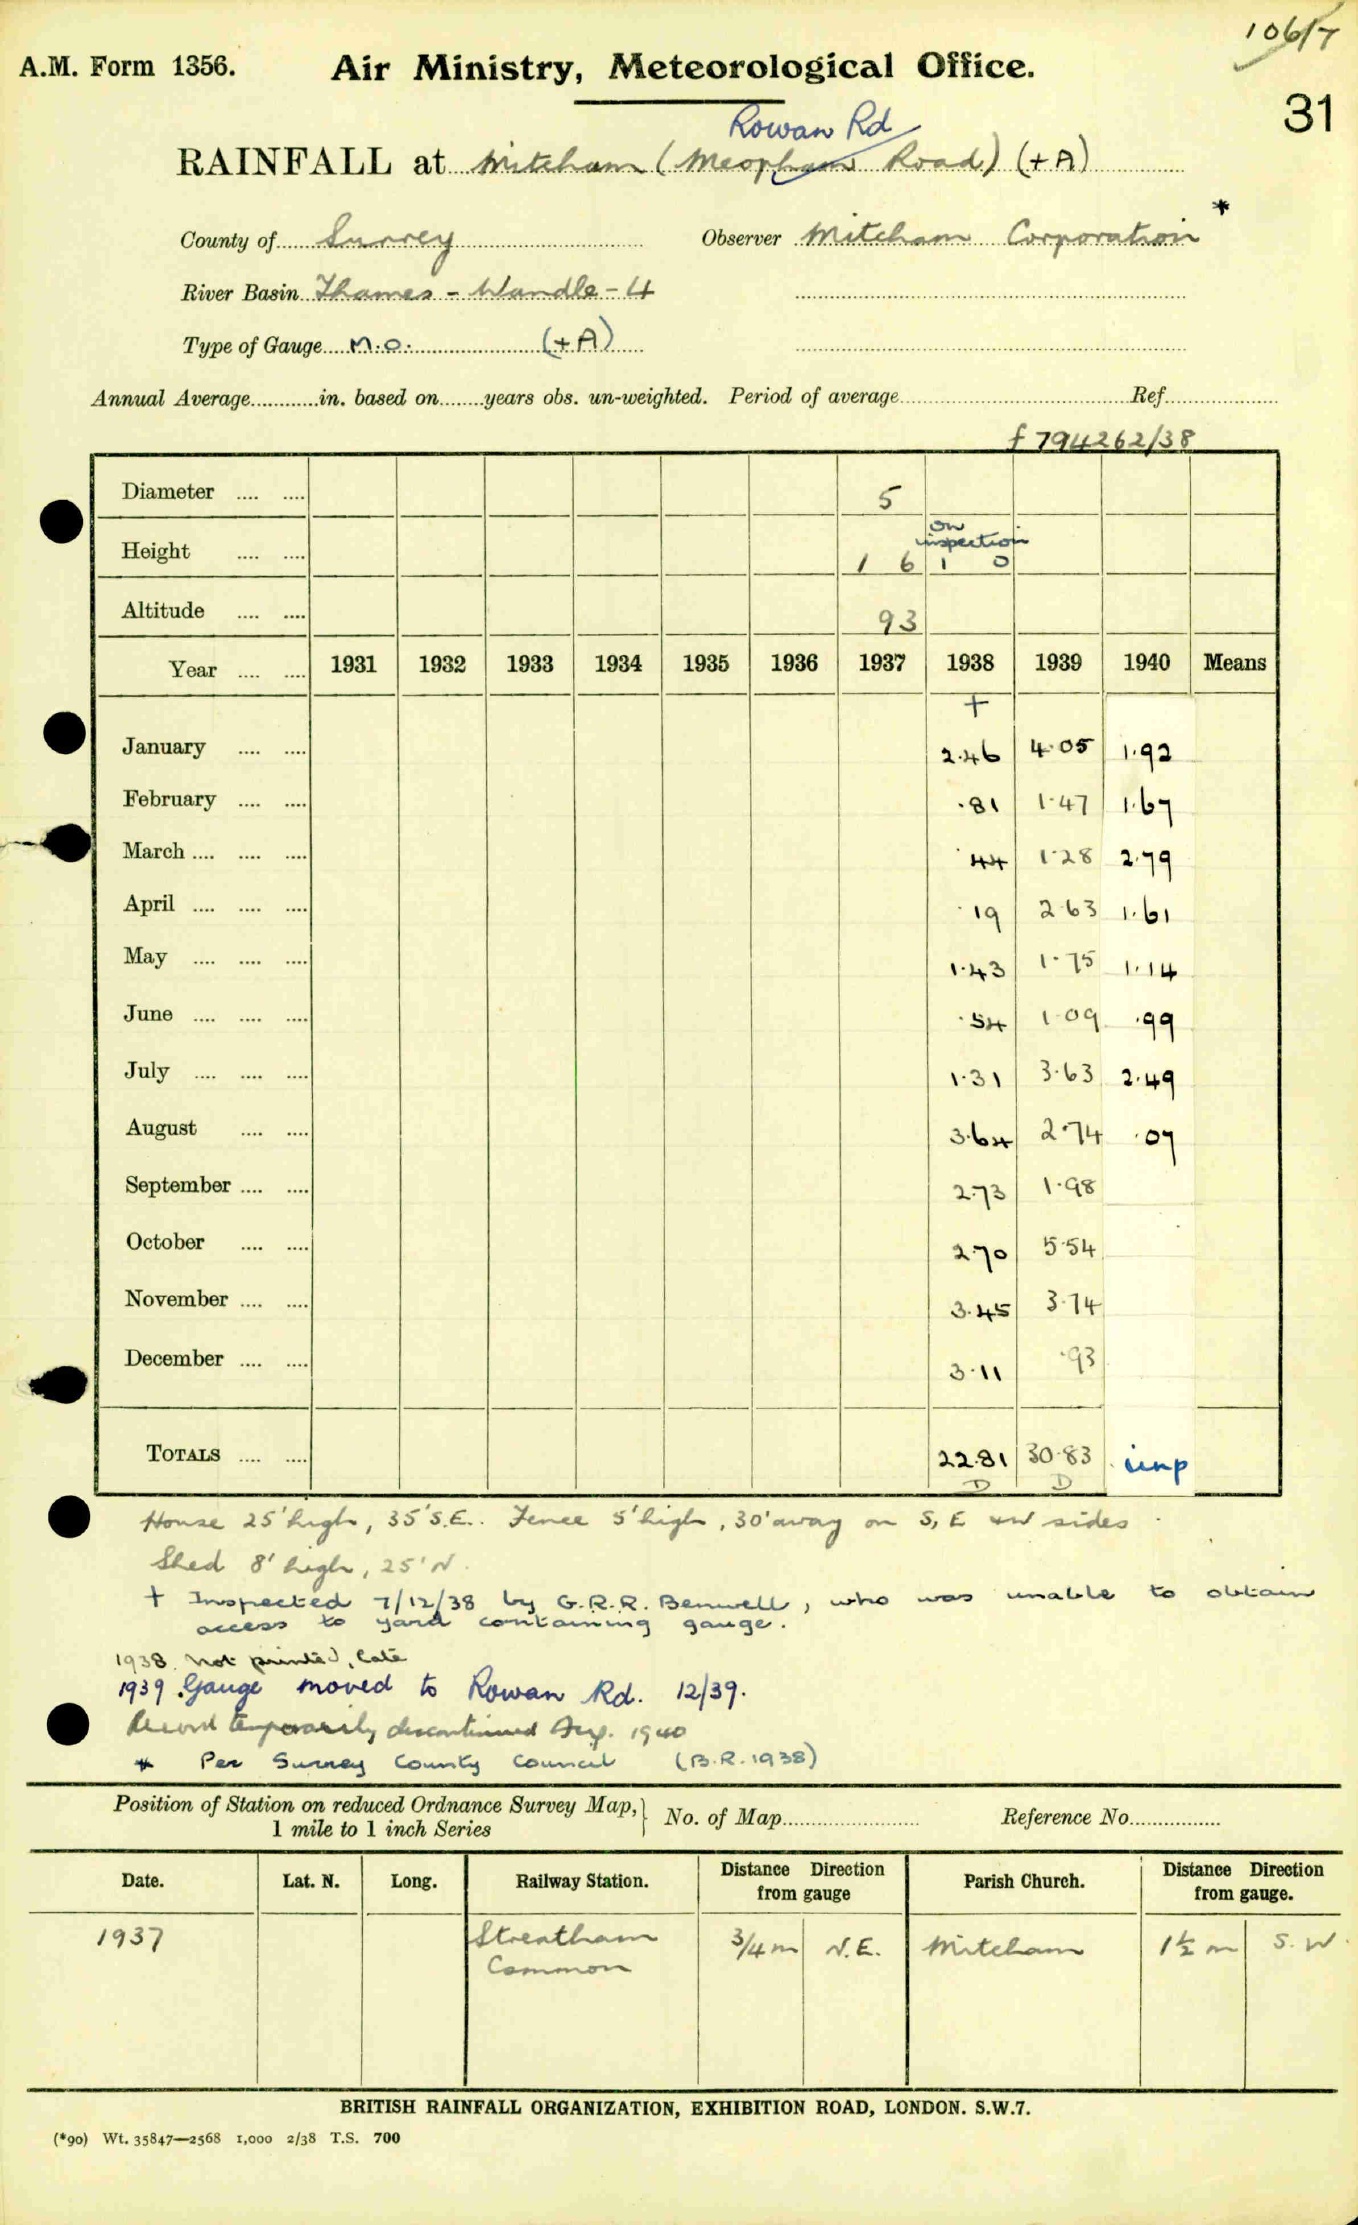 106/7
A.M. Form 1356. Air Ministry, Meteorological Office.
31
Rowan Rd
RAINFALL at Mitcham (Meopham Road) (+A)
*
County of Surrey Observer Mitcham Corporation
River Basin Thames - Wandle - 4
Type of Gauge M.O. (+A)
Annual Average............in. based on........years obs. un-weighted. Period of average..........Ref..........
f 794262/38
Diameter .... .... 5
on
inspection
Height .... .... 1 6 1 0
Altitude .... .... 93
Year .... .... 1931 1932 1933 1934 1935 1936 1937 1938 1939 1940 Means
+
January .... .... 2.46 4.05 1.92
February .... .... .81 1.47 1.67
March .... .... .... .44 1.28 2.79
April .... .... .... .19 2.63 1.61
May .... .... .... 1.43 1.75 1.14
June .... .... .... .54 1.09 .99
July .... .... .... 1.31 3.63 2.49
August .... .... 3.64 2.74 .07
September .... .... 2.73 1.98
October .... .... 2.70 5.54
November .... .... 3.45 3.74
December .... .... 3.11 .93
TOTALS .... .... 22.81 30.83 imp
D D
House 25' high, 35' S.E. Fence 5' high, 30' away on S, E & W sides
Shed 8' high, 25' N.
+ Inspected 7/12/38 by G.R.R. Benwell, who was unable to obtain
access to yard containing gauge.
1938 Not printed, late
1939 Gauge moved to Rowan Rd. 12/39.
Record temporarily discontinued Aug. 1940
* Per Surrey County Council (B.R. 1938)
Position of Station on reduced Ordnance Survey Map, } No. of Map.......... Reference No..........
1 mile to 1 inch Series
Date. Lat. N. Long. Railway Station. Distance Direction from gauge Parish Church. Distance Direction from gauge.
1937 Streatham Common 3/4 m N.E. Mitcham 1 1/2 m S.W.
BRITISH RAINFALL ORGANIZATION, EXHIBITION ROAD, LONDON. S.W.7.
(*90) Wt. 35847—2568 1,000 2/38 T.S. 700